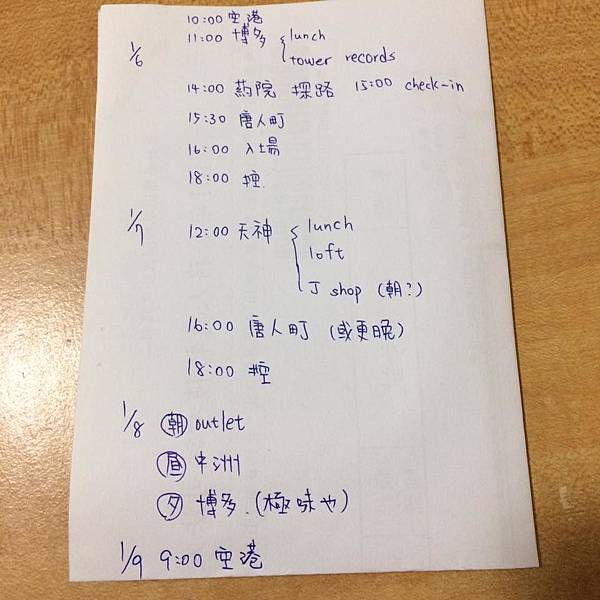 10:00 空港
1/6 11:00 博多 lunch
tower records
14:00 薬院 探路 15:00 check-in
15:30 唐人町
16:00 入場
18:00 控
1/7 12:00 天神 lunch
loft
J shop (朝?)
16:00 唐人町 (或更晚)
18:00 控
1/8 朝 outlet
昼 中洲
夕 博多.(極味や)
1/9 9:00 空港